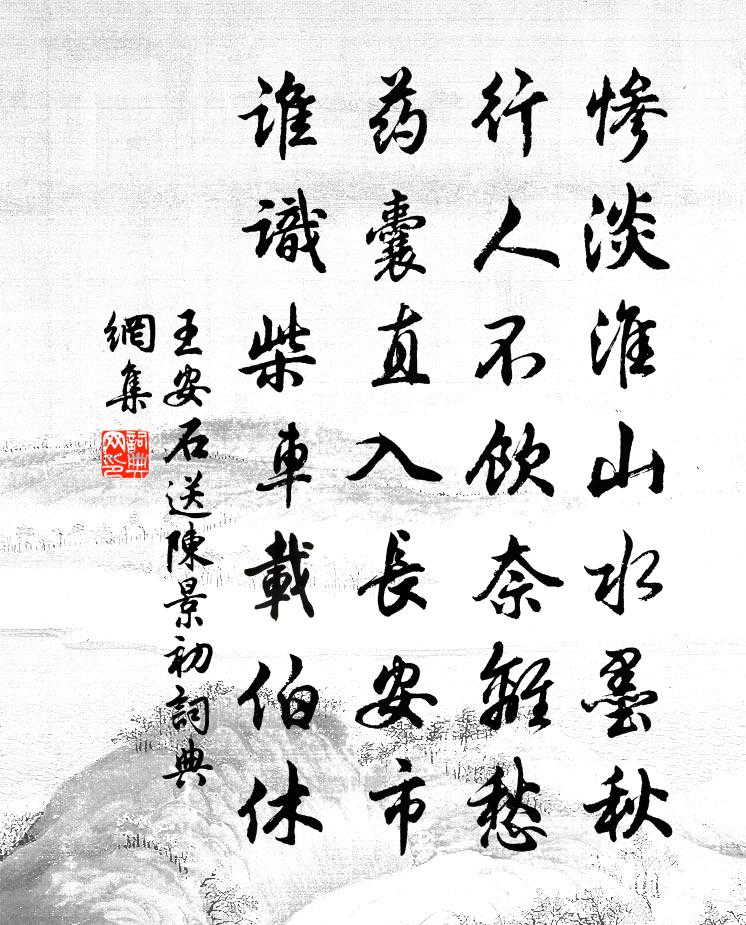 惨淡淮山水墨秋
行人不饮奈離愁
药囊直入長安市
谁識柴車載伯休
王安石送陳景初詞典
網集
詞典网印